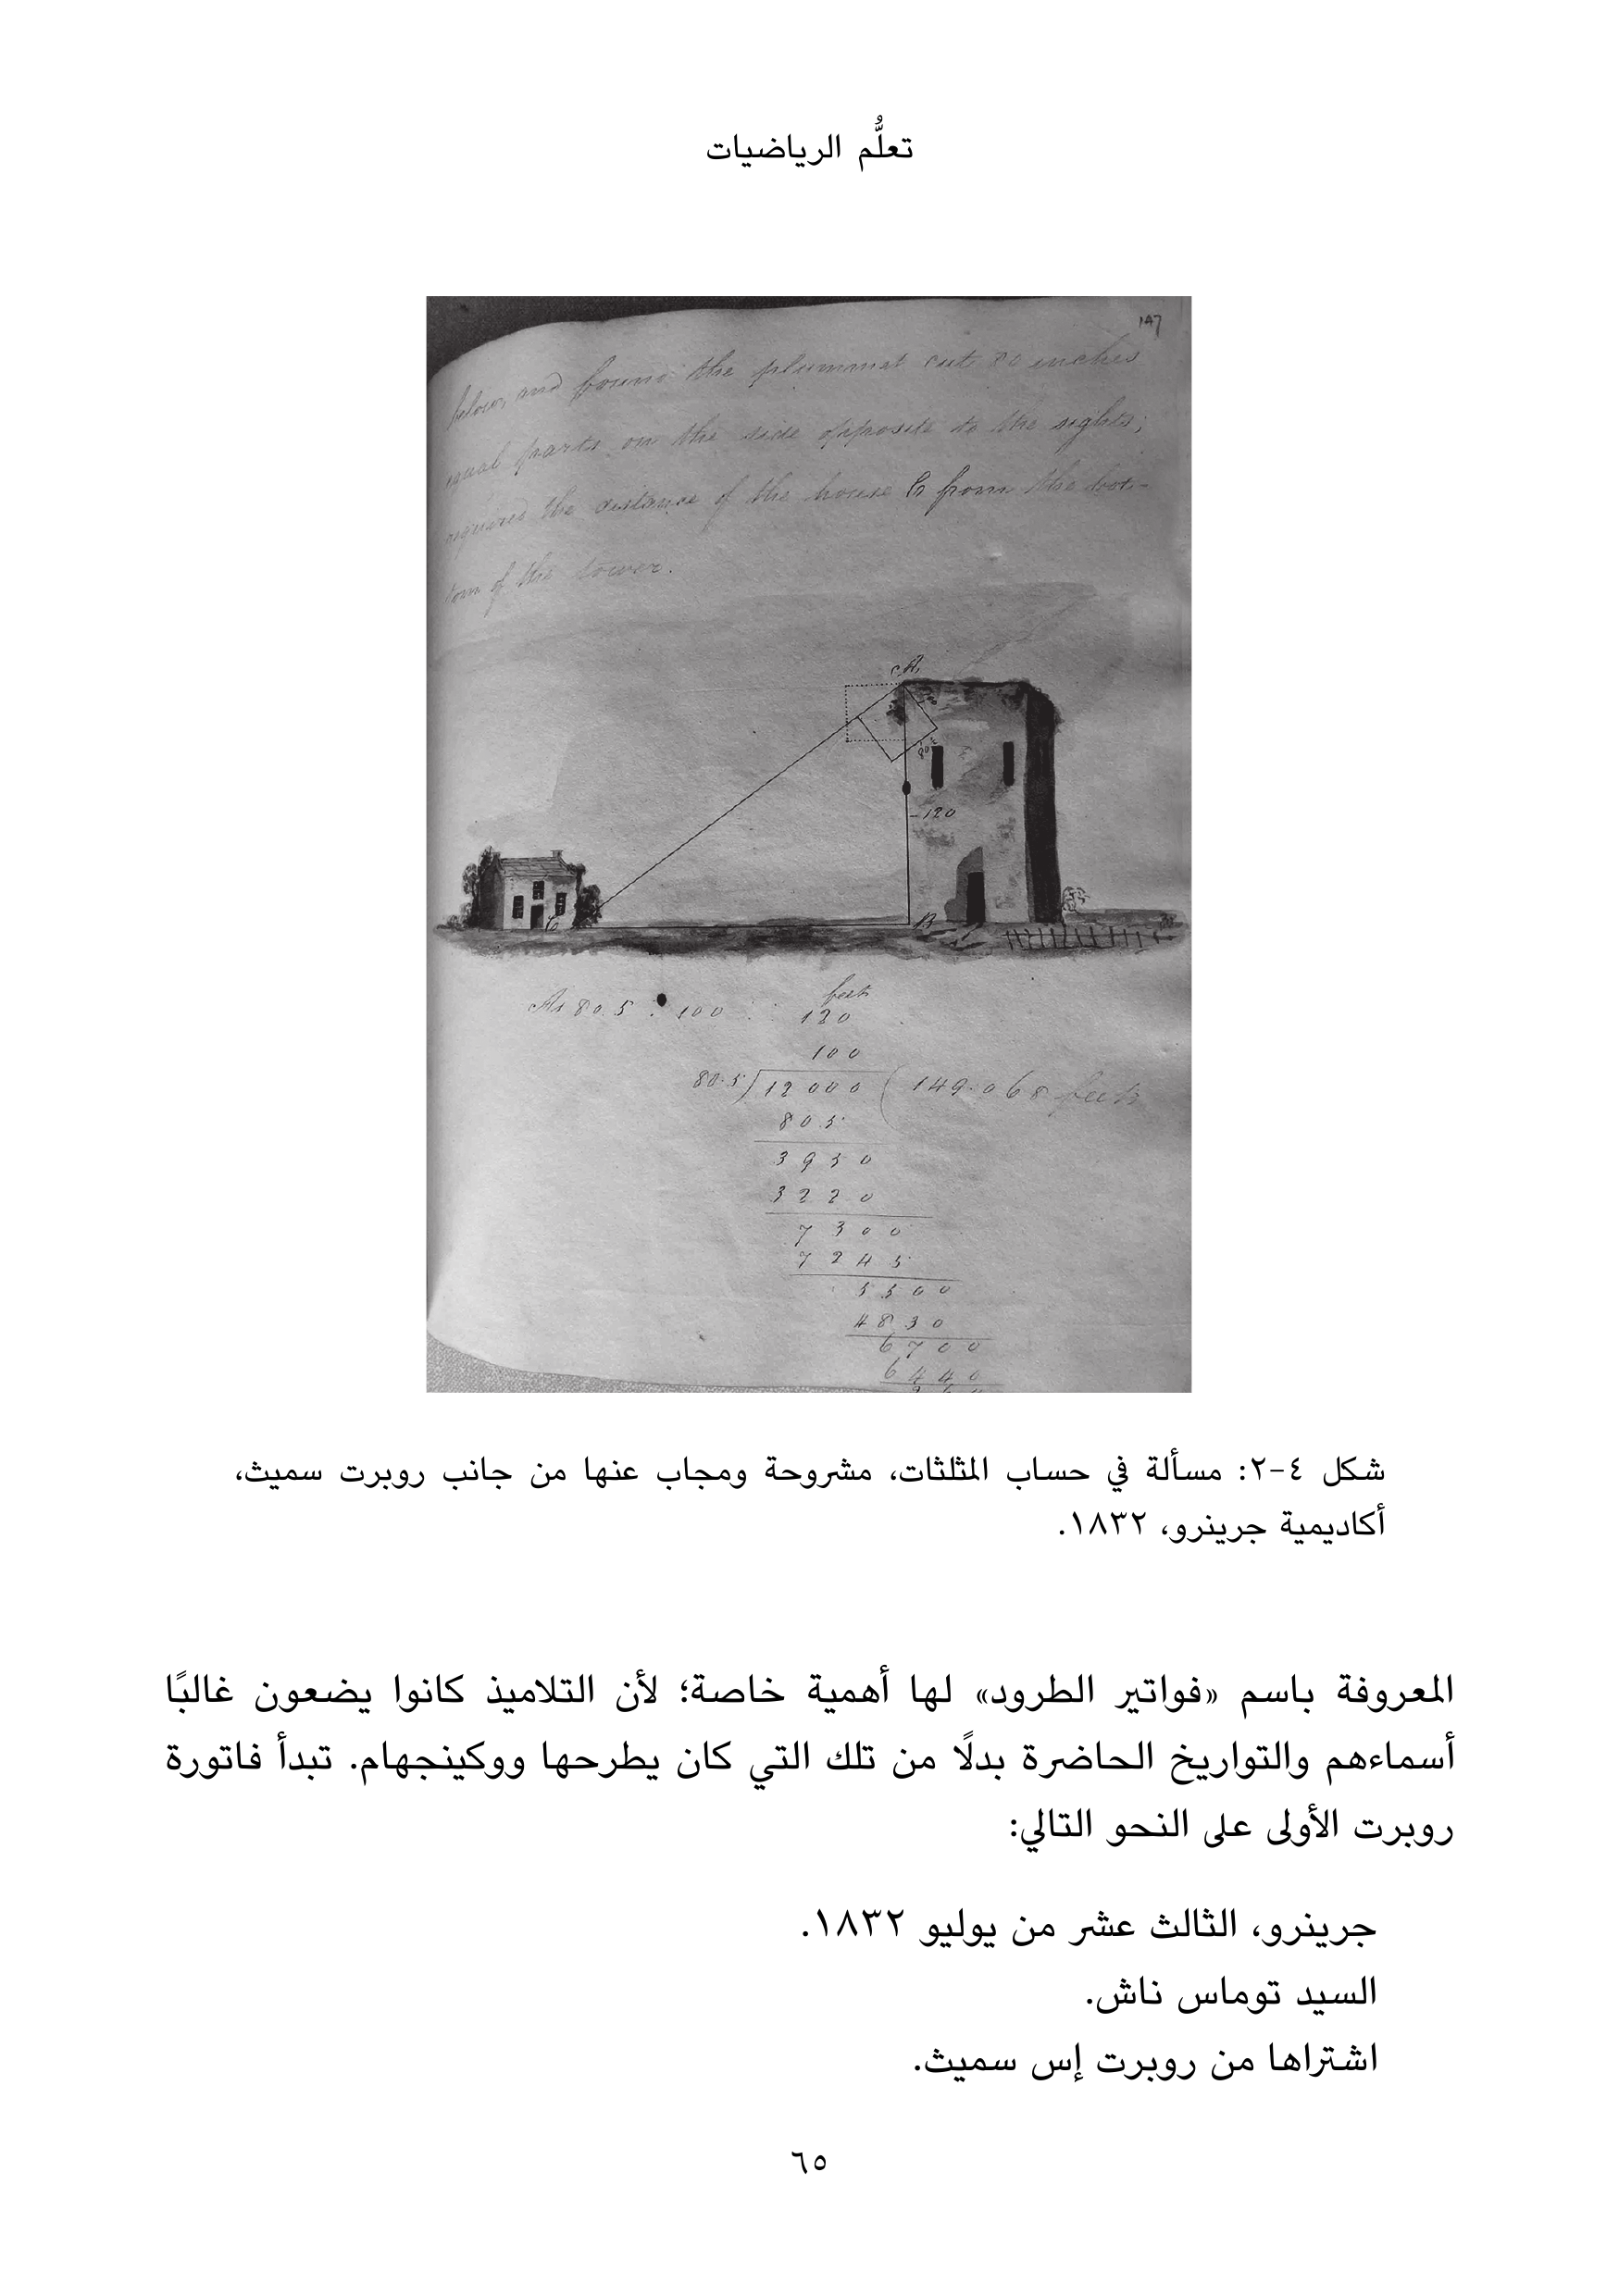 تعلُّم الرياضيات
147
below, and found the plummet cut 80 inches
equal parts on the side opposite to the sights;
required the distance of the house C from the bot-
tom of the tower.
A
100
120
C
B
As 80.5 : 100 :: 120
feet
100
80.5) 12000 ( 149.068 feet
805
3950
3220
7300
7245
5500
4830
6700
6440
شكل ٤-٢: مسألة في حساب المثلثات، مشروحة ومجاب عنها من جانب روبرت سميث،
أكاديمية جرينرو، ١٨٣٢.
المعروفة باسم «فواتير الطرود» لها أهمية خاصة؛ لأن التلاميذ كانوا يضعون غالبًا
أسماءهم والتواريخ الحاضرة بدلًا من تلك التي كان يطرحها ووكينجهام. تبدأ فاتورة
روبرت الأولى على النحو التالي:
جرينرو، الثالث عشر من يوليو ١٨٣٢.
السيد توماس ناش.
اشتراها من روبرت إس سميث.
٦٥